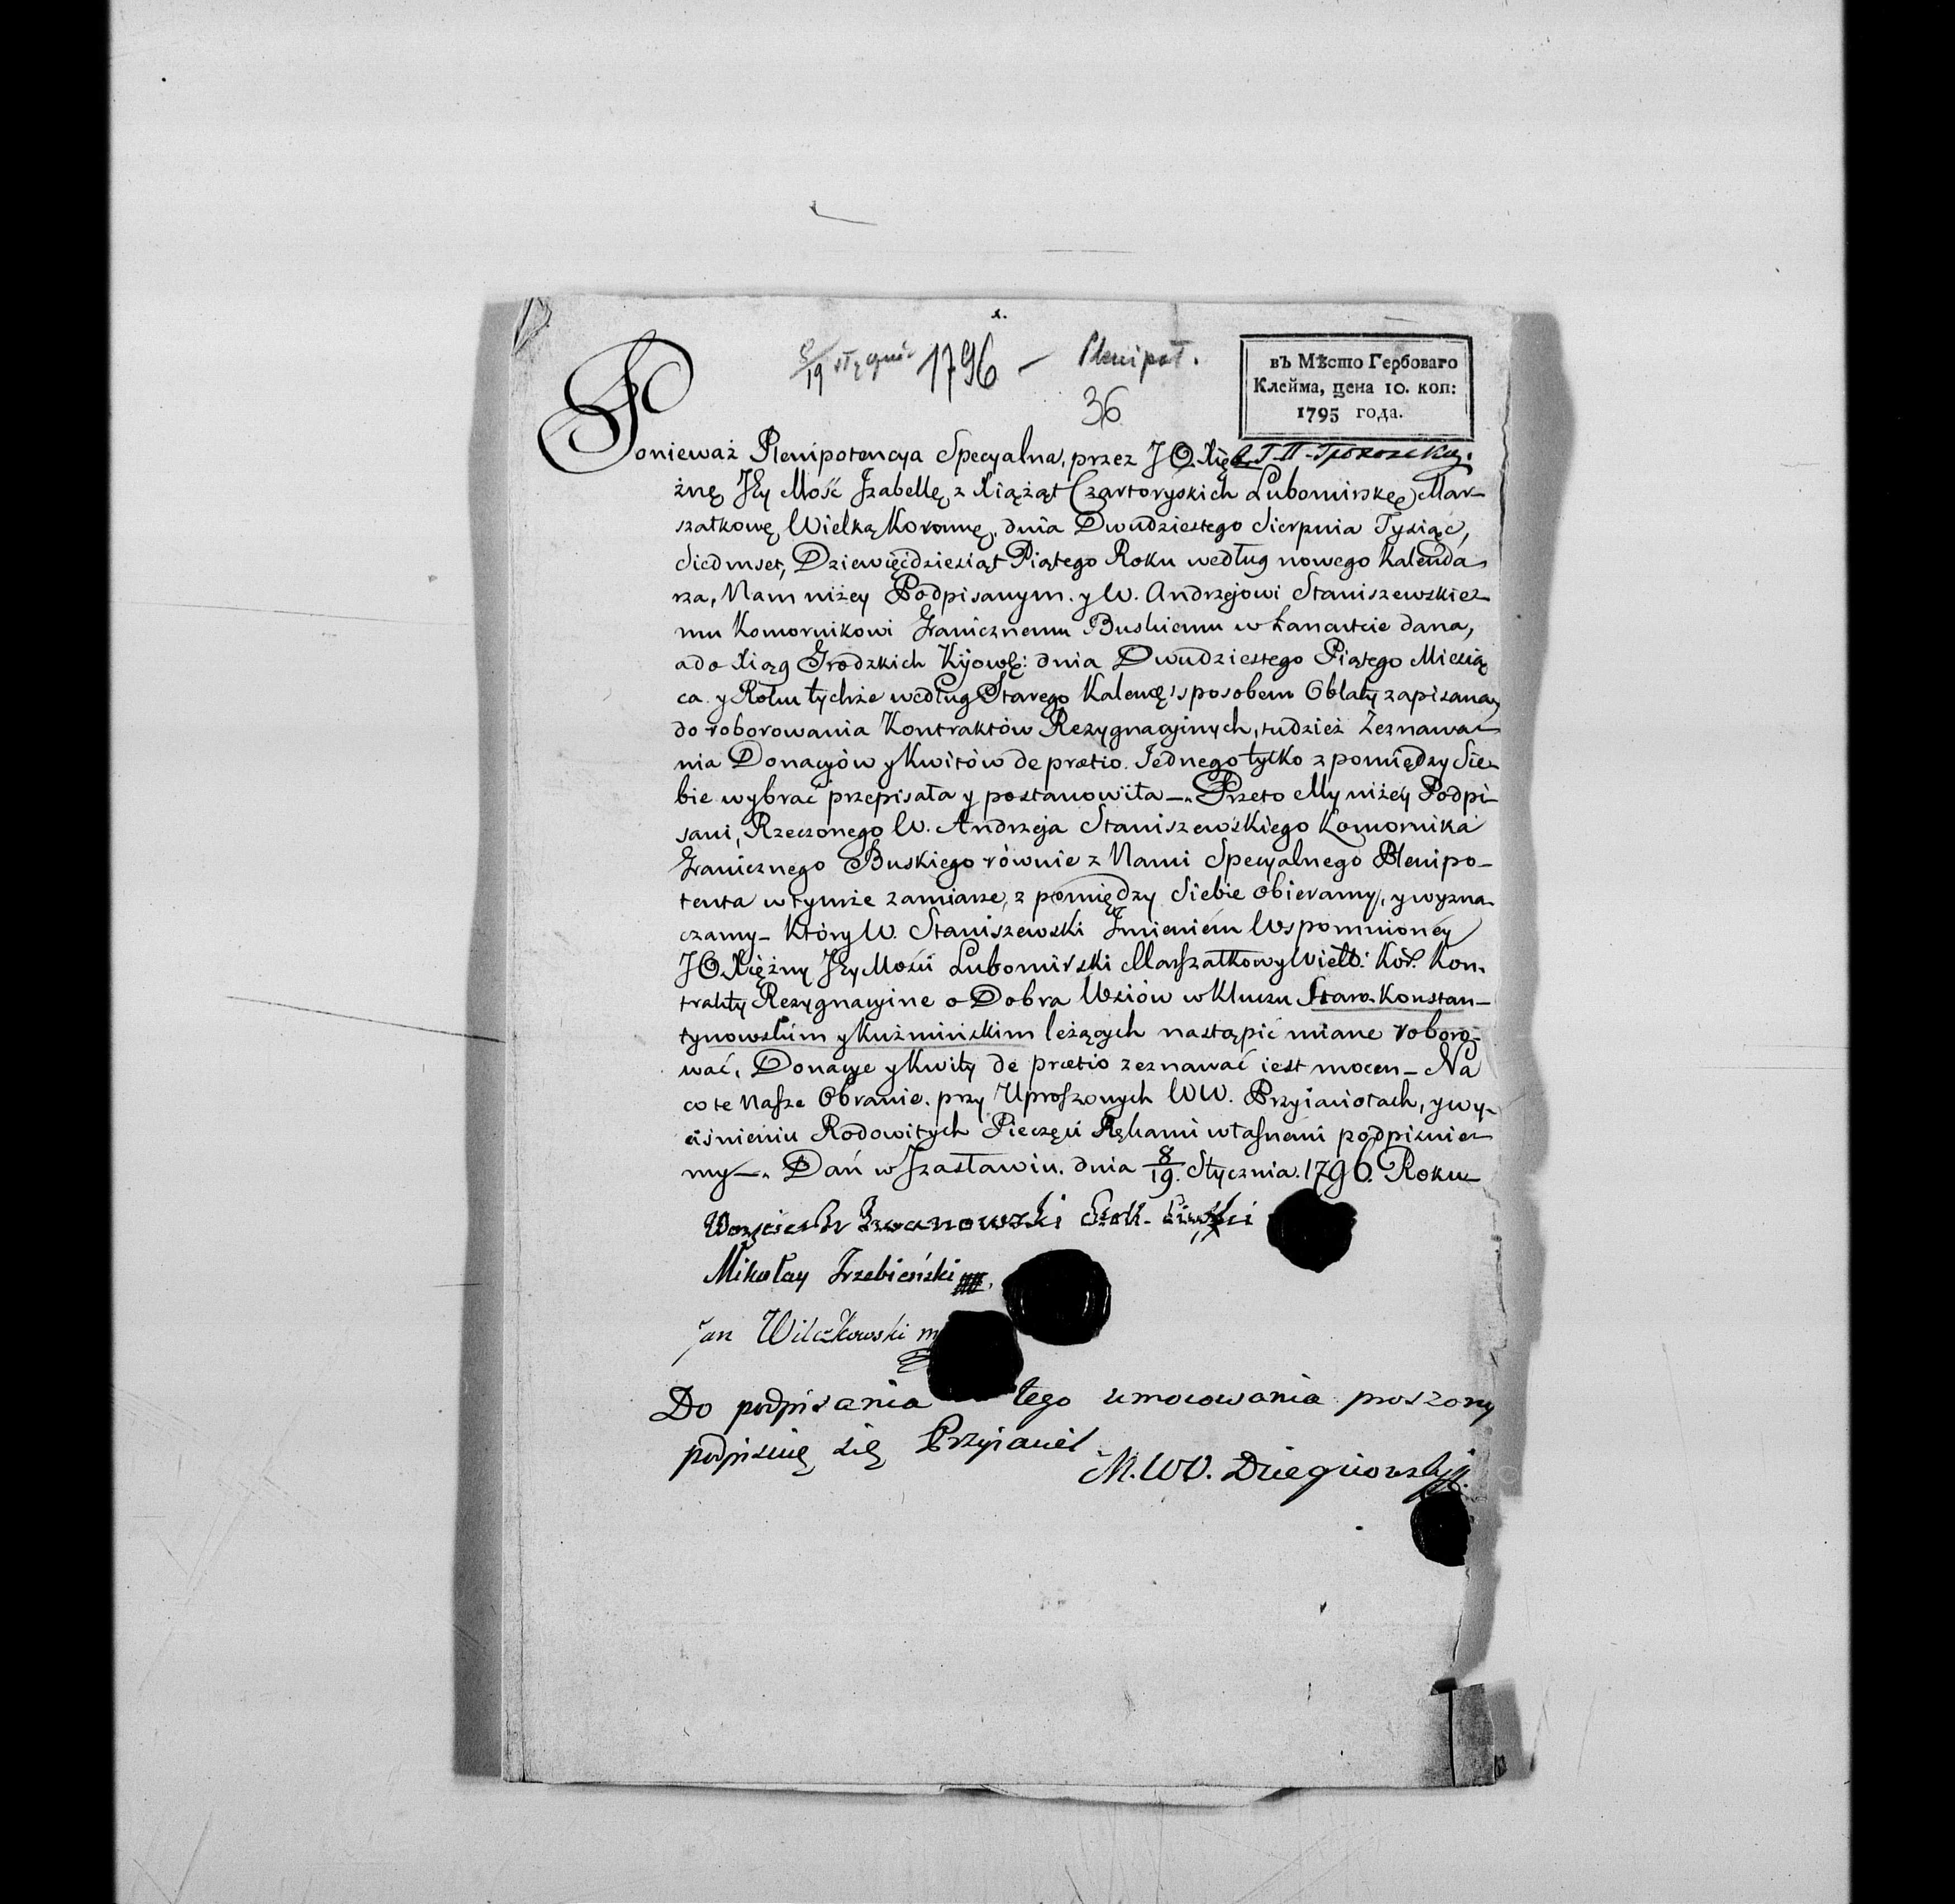 8/19 stycznia 1796 — Plenipot.
36
въ Мѣсто Гербоваго
Клейма, цена 10. коп:
1795 года.
Ponieważ Plenipotencya Specyalna, przez JO. Xię-
żnę Jey Mość Izabellę z Xiążąt Czartoryskich Lubomirskę Mar-
szałkowę Wielką Koronnę, dnia Dwudziestego Sierpnia Tysiąc,
Siedmset, Dziewięćdziesiąt Piątego Roku według nowego Kalenda-
rza, Nam niżey Podpisanym. y W. Andrzejowi Staniszewskie-
mu Komornikowi Granicznemu Buskiemu w Łancucie dana,
a do Xiąg Grodzkich Kijow: dnia Dwudziestego Piątego Miesią
ca y Roku tychże według Starego Kalen: sposobem Oblaty zapisana,
do roborowania Kontraktów Rezygnacyinych, tudzież Zeznawa-
nia Donacyów y Kwitów de prætio. Jednego tylko z pomiędzy Sie-
bie wybrać przepisała y postanowiła —. Przeto My niżéy Podpi-
sani, Rzeczonego W. Andrzeja Staniszewskiego Komornika
Granicznego Buskiego równie z Nami Specyalnego Plenipo-
tenta w tymże zamiarze, z pomiędzy Siebie obieramy, y wyzna-
czamy — Który W. Staniszewski Imieniém Wspomnionéy
JO. Xiężny Jey Mości Lubomirski Marszałkowy Wielk: Kor. Kon-
trakty Rezygnacyine o Dobra Wsiów w Kluczu Staro Konstan-
tynowskim y Kuźmińskim leżących nastąpić miane roboro-
wać, Donacye y Kwity de prætio zeznawać iest mocen — Na
co te Nasze Obranie. przy Uproszonych WW. Przyiaciołach, y wy-
ciśnieniu Rodowitych Pieczęci Rękami własnemi podpisuie-
my —. Dań w Zasławiu. dnia 8/19. Stycznia. 1796. Roku
Woyciech Iwanowski
Mikołay Trzebieński
Jan Wilczkowski
Do podpisania tego umocowania proszony
podpisuię się Przyiaciel
M. W.